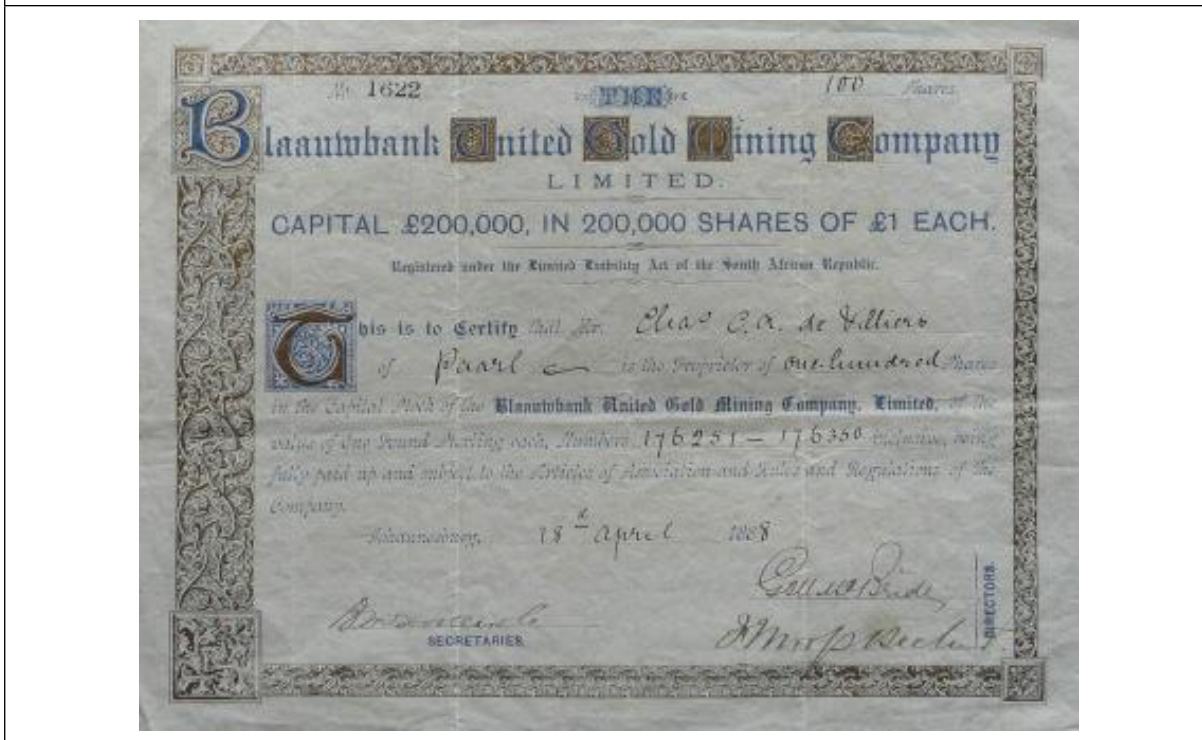 No 1622 THE 100 Shares
Blaauwbank United Gold Mining Company
LIMITED.
CAPITAL £200,000, IN 200,000 SHARES OF £1 EACH.
Registered under the Limited Liability Act of the South African Republic.
This is to Certify that Mr. Chas C.A. de Villiers
of Paarl is the Proprietor of one hundred Shares
in the Capital Stock of the Blaauwbank United Gold Mining Company, Limited, of the
value of One Pound Sterling each, Numbers 176251 – 176350 inclusive, being
fully paid up and subject to the Articles of Association and Rules and Regulations of the
Company.
Johannesburg, 18th April 1888
DIRECTORS.
SECRETARIES.